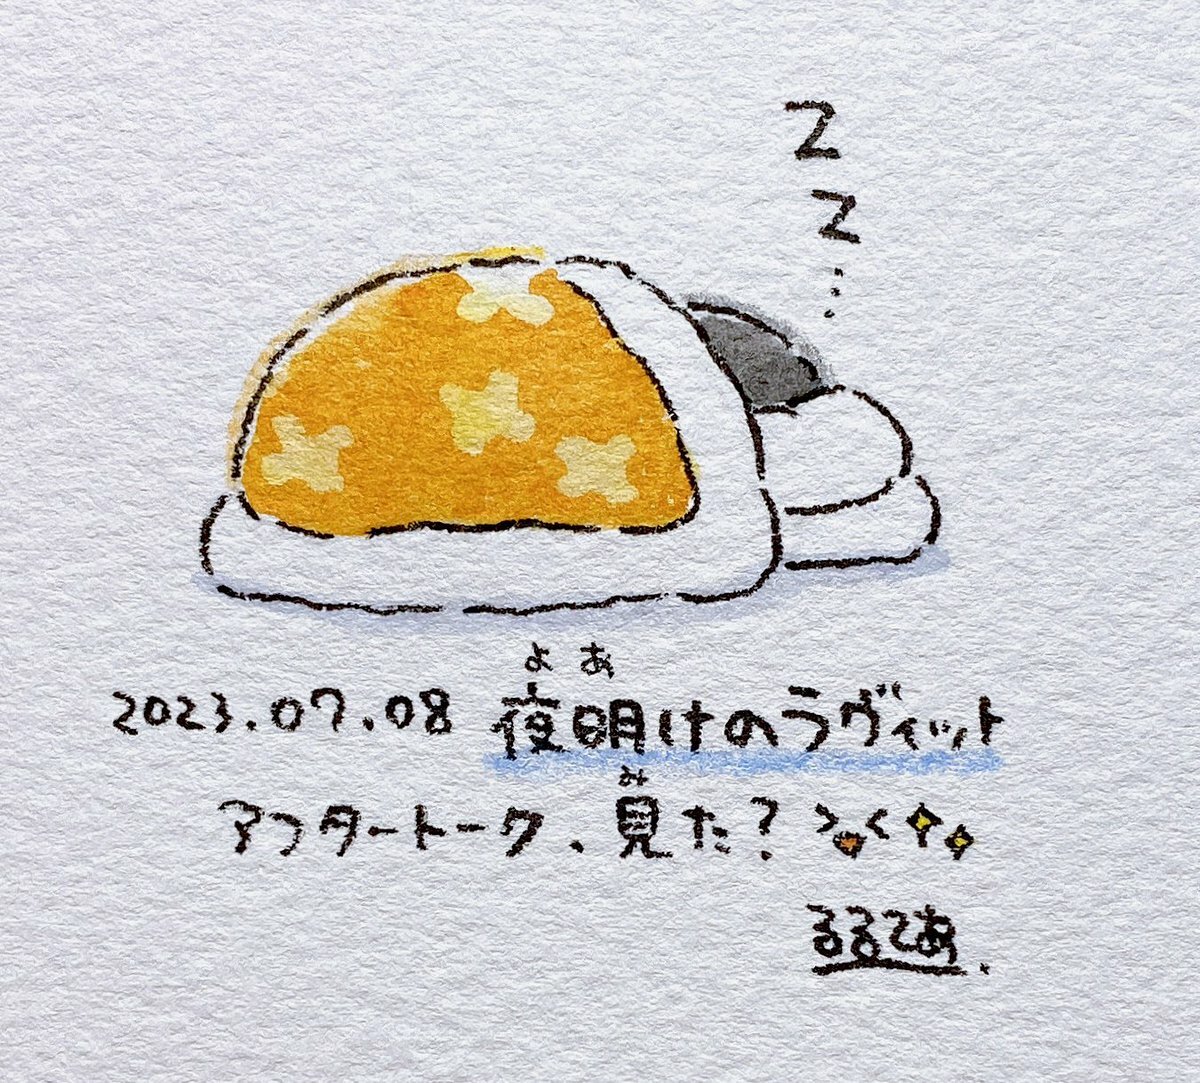 Z
Z
⋮
よ あ
2023.07.08 夜明けのラヴィット
み
アフタートーク、見た?
るるてあ.